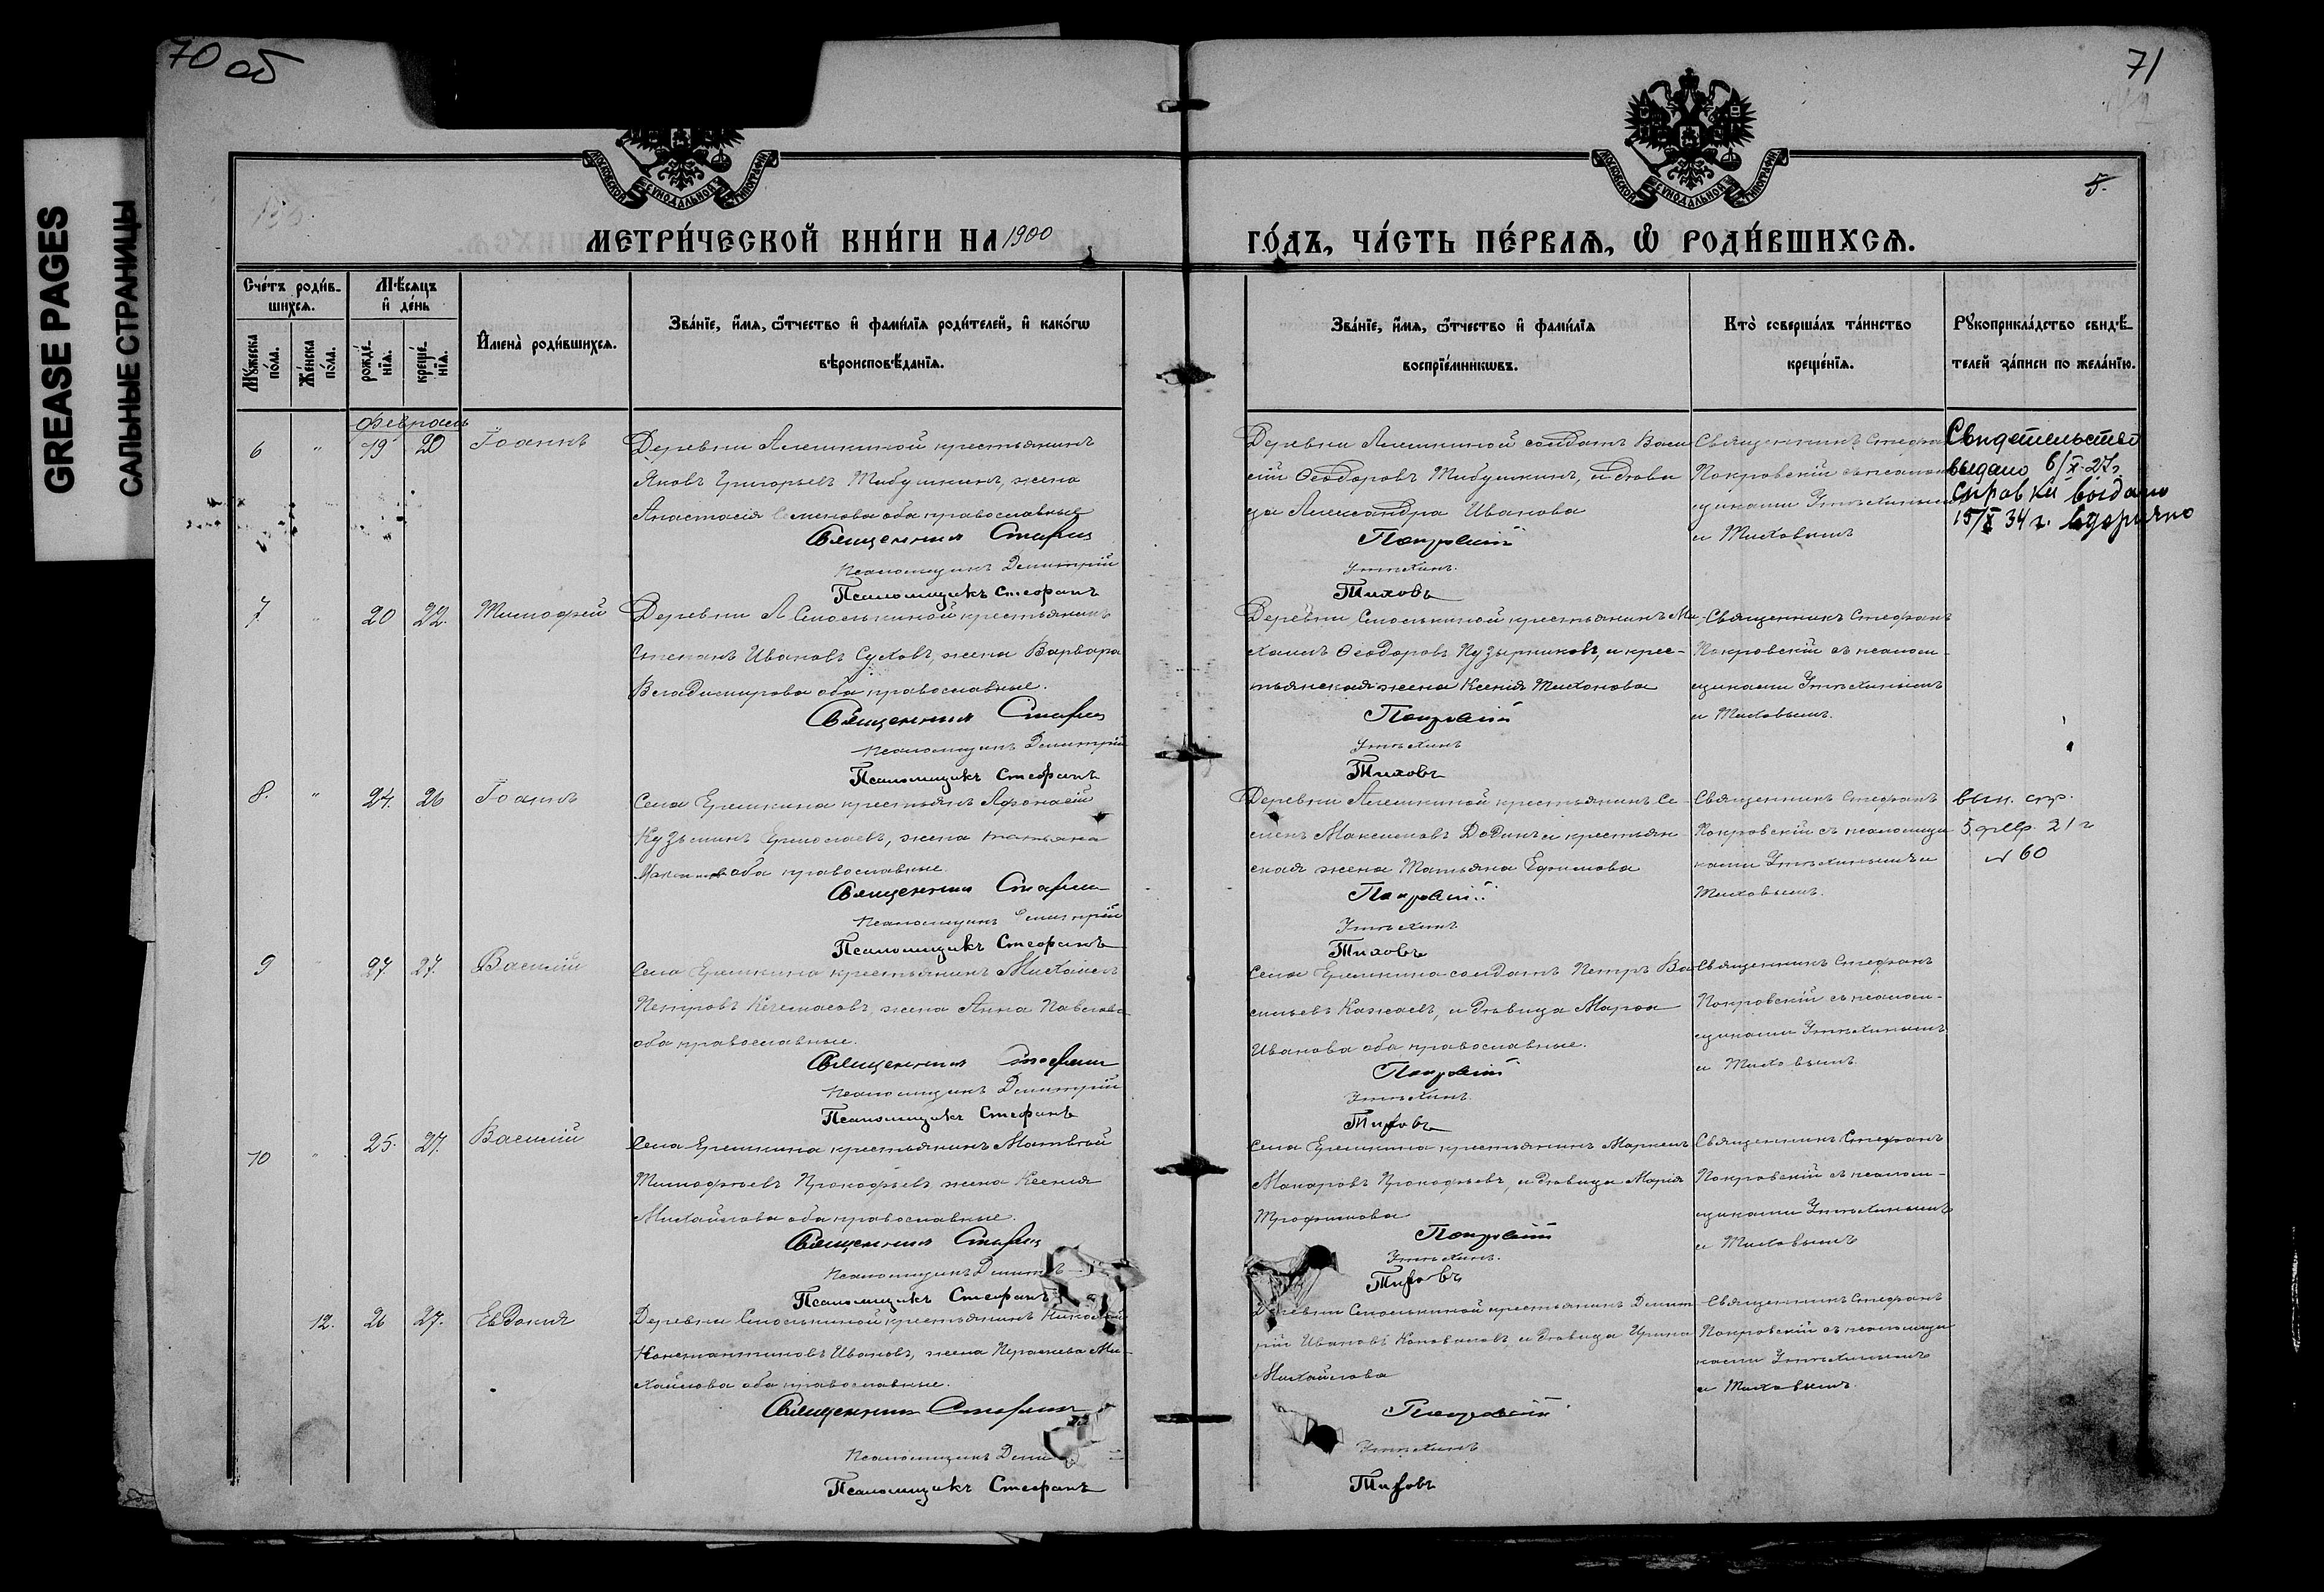 70 об
71
GREASE PAGES
САЛЬНЫЕ СТРАНИЦЫ
МОСКОВСКОЙ СѴНОДАЛЬНОЙ ТИПОГРАФІИ
МОСКОВСКОЙ СѴНОДАЛЬНОЙ ТИПОГРАФІИ
5.
МЕТРИ́ЧЕСКОЙ КНИ́ГИ НА 1900
ГО́ДЪ, ЧА́СТЬ ПЕ́РВАѦ, Ѽ РОДИ́ВШИХСѦ.
Сче́тъ роди́в-
шихсѧ.
Мꙋ́жеска по́ла.
Же́нска по́ла.
Мѣ́сѧцъ
и҆ де́нь
рожде́-
нїѧ.
креще́-
нїѧ.
И҆мена̀ роди́вшихсѧ.
Зва́нїе, и҆́мѧ, ѻ҆́тчество и҆ фами́лїѧ роди́телей, и҆ како́гѡ
вѣроисповѣ́данїѧ.
Зва́нїе, и҆́мѧ, ѻ҆́тчество и҆ фами́лїѧ
воспрїе́мникѡвъ.
Кто̀ соверша́лъ та́инство
креще́нїѧ.
Рꙋкоприкла́дство свидѣ́-
телей за́писи по жела́нїю.
Февраль
6 " 19 20 Іоаннъ
Деревни Алешкиной крестьянинъ
Яковъ Григорьевъ Тибушкинъ, жена
Анастасія Семенова оба православные
Священникъ Стефанъ
Псаломщикъ Димитрій
Псаломщикъ Стефанъ
Деревни Алешкиной солдатъ Васи
лій Ѳеодоровъ Тибушкинъ, и дѣви
ца Александра Иванова
Покровскій
Утѣхинъ.
Тиховъ
Священникъ Стефанъ
Покровскій съ псалом
щиками Утѣхинымъ
и Тиховымъ
Свидетельство
выдано 6/X-27г
Справки выдано
15/X 34 г. вторично
7 " 20 22. Тимофей
Деревни Смолькиной крестьянинъ
Степанъ Ивановъ Суховъ, жена Варвара
Владимирова оба православные.
Священникъ Стефанъ
Псаломщикъ Димитрій
Псаломщикъ Стефанъ
Деревни Смолькиной крестьянинъ Ми-
хаилъ Ѳеодоровъ Пузырниковъ, и крес-
тьянская жена Ксенія Тихонова
Покровскій
Утѣхинъ
Тиховъ
Священникъ Стефанъ
Покровскій съ псалом-
щиками Утѣхинымъ
и Тиховымъ.
8. " 24. 26 Іоаннъ
Села Еремкина крестьянъ Афонасій
Кузьминъ Ермолаевъ, жена Татьяна
оба православные.
Священникъ Стефанъ
Псаломщикъ Димитрій
Псаломщикъ Стефанъ
Деревни Алешкиной крестьянинъ Се-
менъ Максимовъ Додинъ и крестьян
ская жена Татьяна Ефимова
Покровскій
Утѣхинъ
Тиховъ
Священникъ Стефанъ
Покровскій съ псаломщи
ками Утѣхинымъ и
Тиховымъ.
вып. спр.
5 февр. 21 г
№ 60
9 27 27. Василій
Села Еремкина крестьянинъ Михаилъ
Петровъ, жена Анна Павлова
оба православные.
Священникъ Стефанъ
Псаломщикъ Димитрій
Псаломщикъ Стефанъ
Села Еремкина солдатъ Петръ Ва
сильевъ Кажаевъ, и дѣвица Марѳа
Иванова оба православные.
Покровскій
Утѣхинъ.
Тиховъ
Священникъ Стефанъ
Покровскій съ псалом-
щиками Утѣхинымъ
и Тиховымъ.
10 " 25. 27. Василій
Села Еремкина крестьянинъ Матвѣй
Тимофѣевъ Прокофьевъ жена Ксенія
Михайлова оба православные.
Священникъ Стефанъ
Псаломщикъ
Псаломщикъ Стефанъ
Села Еремкина крестьянинъ Маркелъ
Макаровъ Прокофьевъ, и дѣвица Марія
Трофимова
Покровскій
Утѣхинъ.
Тиховъ
Священникъ Стефанъ
Покровскій съ псалом-
щиками Утѣхинымъ
и Тиховымъ
12. 26 27. Евдокія
Деревни Смолькиной крестьянинъ Николай
Константиновъ Ивановъ, жена Ми-
хайлова оба православные.
Священникъ Стефанъ
Псаломщикъ
Псаломщикъ Стефанъ
Деревни Смолькиной крестьянинъ Димит
рій Ивановъ Коноваловъ и дѣвица Ирина
Михайлова
Покровскій
Утѣхинъ
Тиховъ
Священникъ Стефанъ
Покровскій съ псаломщи
ками Утѣхинымъ
и Тиховымъ.